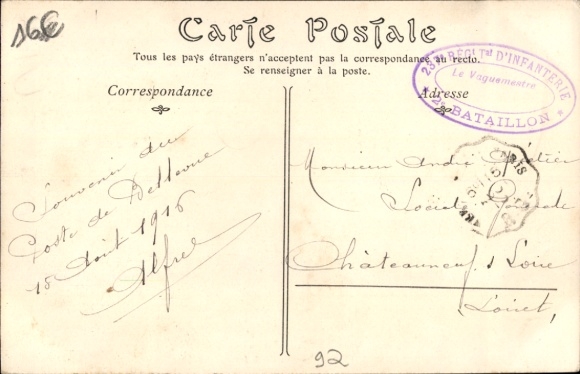 16€
Carte Postale
Tous les pays étrangers n'acceptent pas la correspondance au recto.
Se renseigner à la poste.
Correspondance
Adresse
RÉGI Tal D'INFANTERIE
Le Vaguemestre
BATAILLON
PARIS
Souvenir du
Poste de Bellevue
15 Août 1916
Alfred
Monsieur André
Châteauneuf s Loire
Loiret,
92